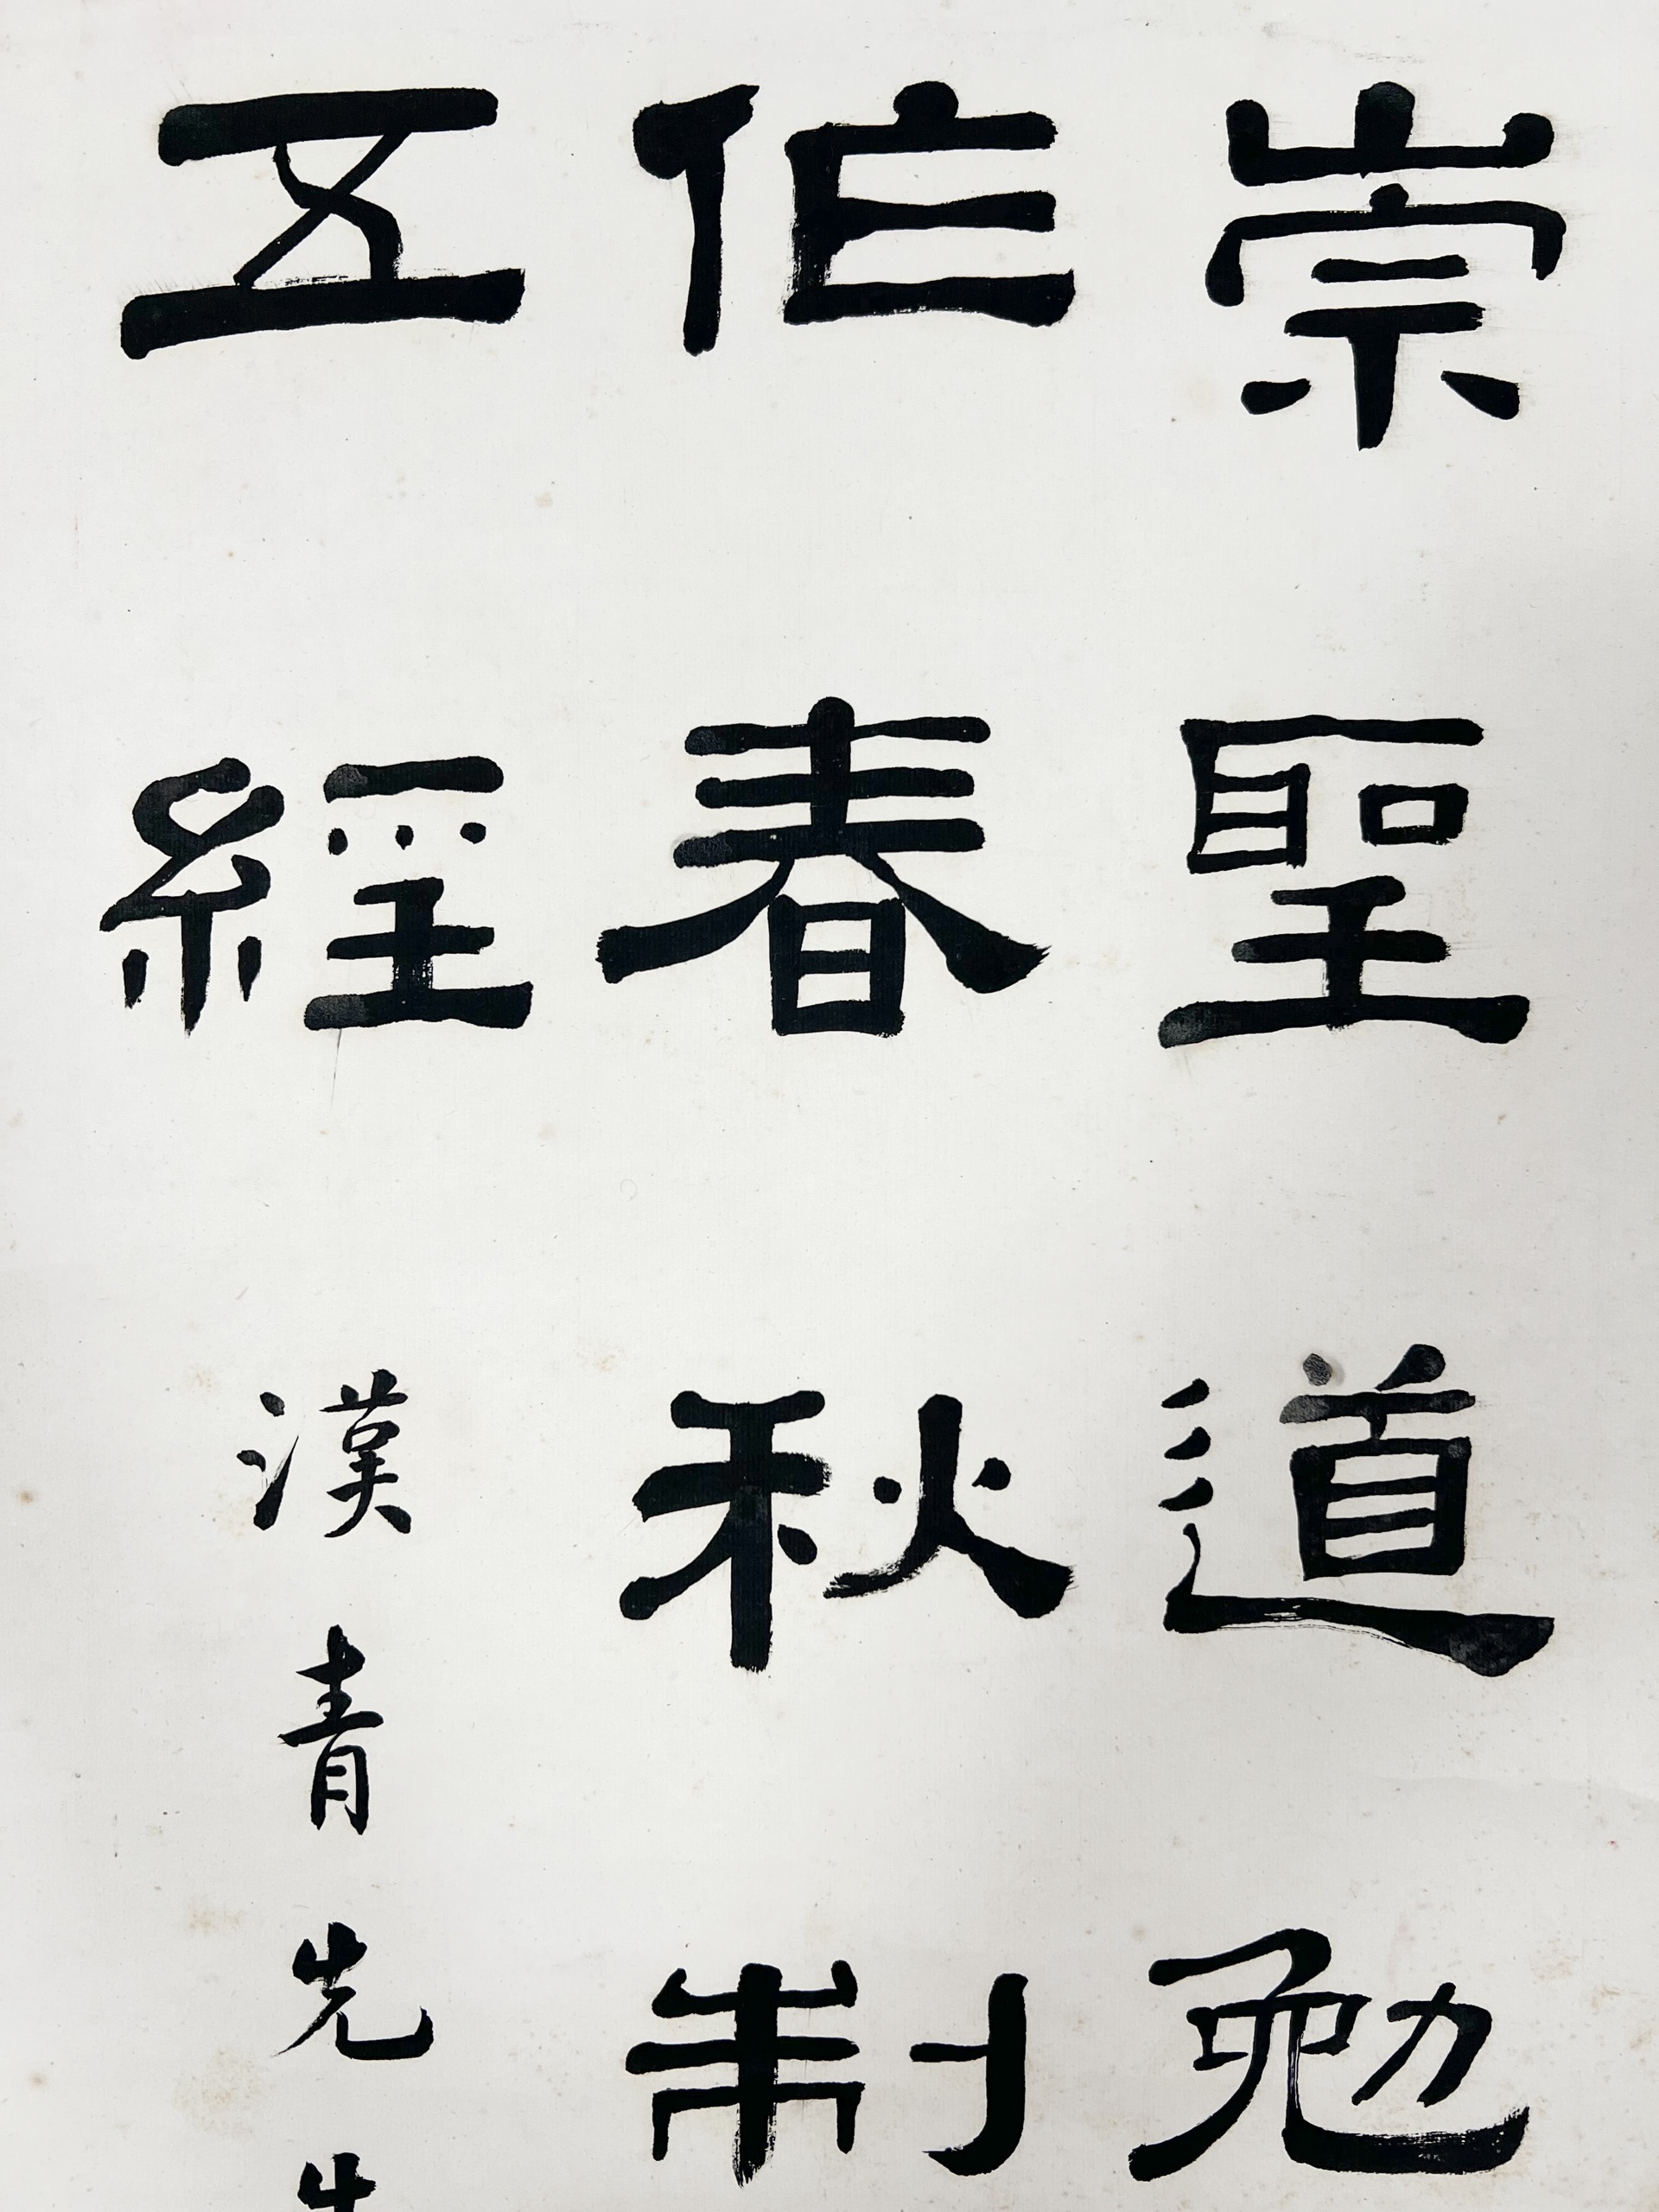 崇聖道勉
作春秋制
五經漢青先生